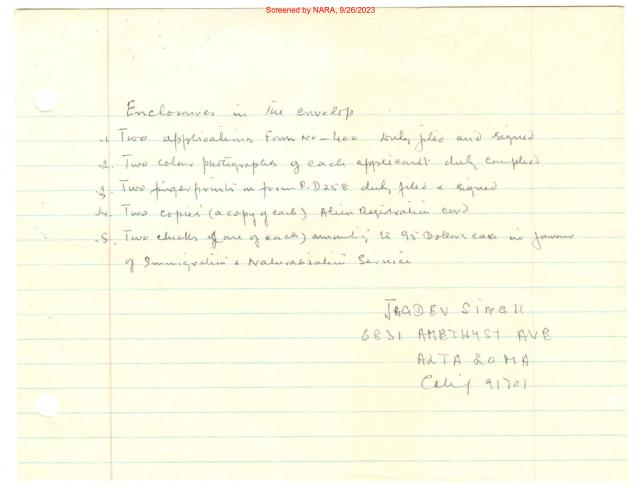 Screened by NARA, 9/26/2023
Enclosures in the envelop
1. Two applications Form No-400 duly filed and signed
2. Two colour photographs of each applicant duly complied
3. Two fingerprints on form F.D 258 duly filed & signed
4. Two copies (a copy of each) Alien Registration card
5. Two checks (one of each) amounting to 95 Dollars each in favour
of Immigration & Naturalization Service
JAGDEV SINGH
6831 AMETHYST AVE
ALTA LOMA
Calif 91701